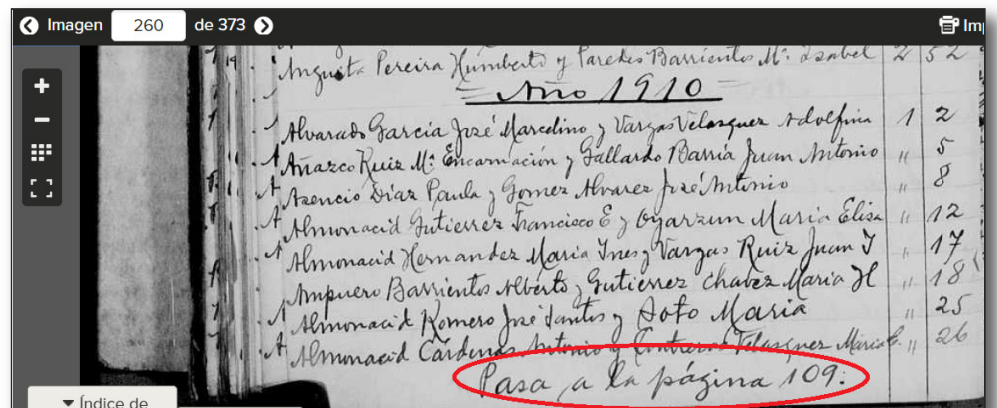 Imagen 260 de 373
Angusto Pereira Humberto y Paredes Barrientos Mª Isabel 2 52
Año 1910
Alvarado García José Marcelino y Vargas Velasquez Adolfina 1 2
Añazco Ruiz Mª Encarnación y Gallardo Barría Juan Antonio " 5
Asencio Díaz Paula y Gomez Alvarez José Antonio " 8
Almonacid Gutierrez Francisco E y Oyarzun Maria Elisa " 12
Almonacid Hernandez Maria Ines y Vargas Ruiz Juan J " 17
Ampuero Barrientos Alberto y Gutierrez Chavez Maria H " 18
Almonacid Romero José Santos y Soto Maria " 25
Almonacid Cárdenas Antonio y Contreras Velasquez Maria C. " 26
Pasa a la página 109.
Índice de